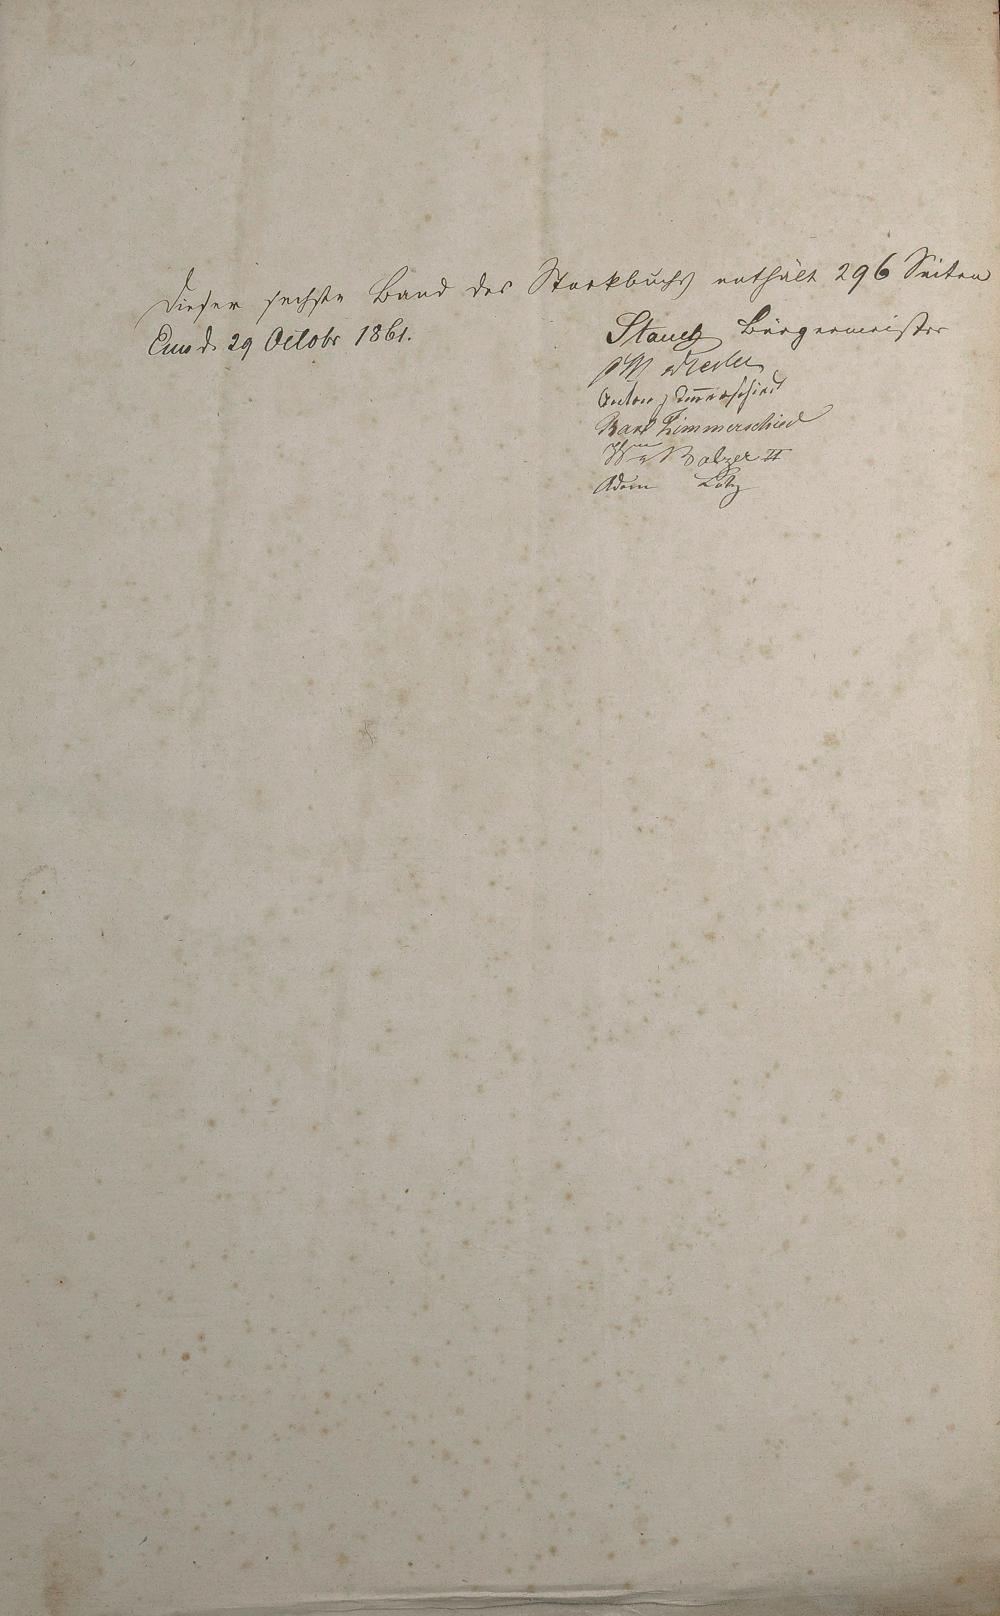 Dieser sechste Band des Stockbuchs enthält 296 Seiten
Ems d. 29 Octobr 1861.
Stauch Bürgermeister
Anton Zimmerschied
Karl Zimmerschied
Wm Balzer II
Adam Lotz